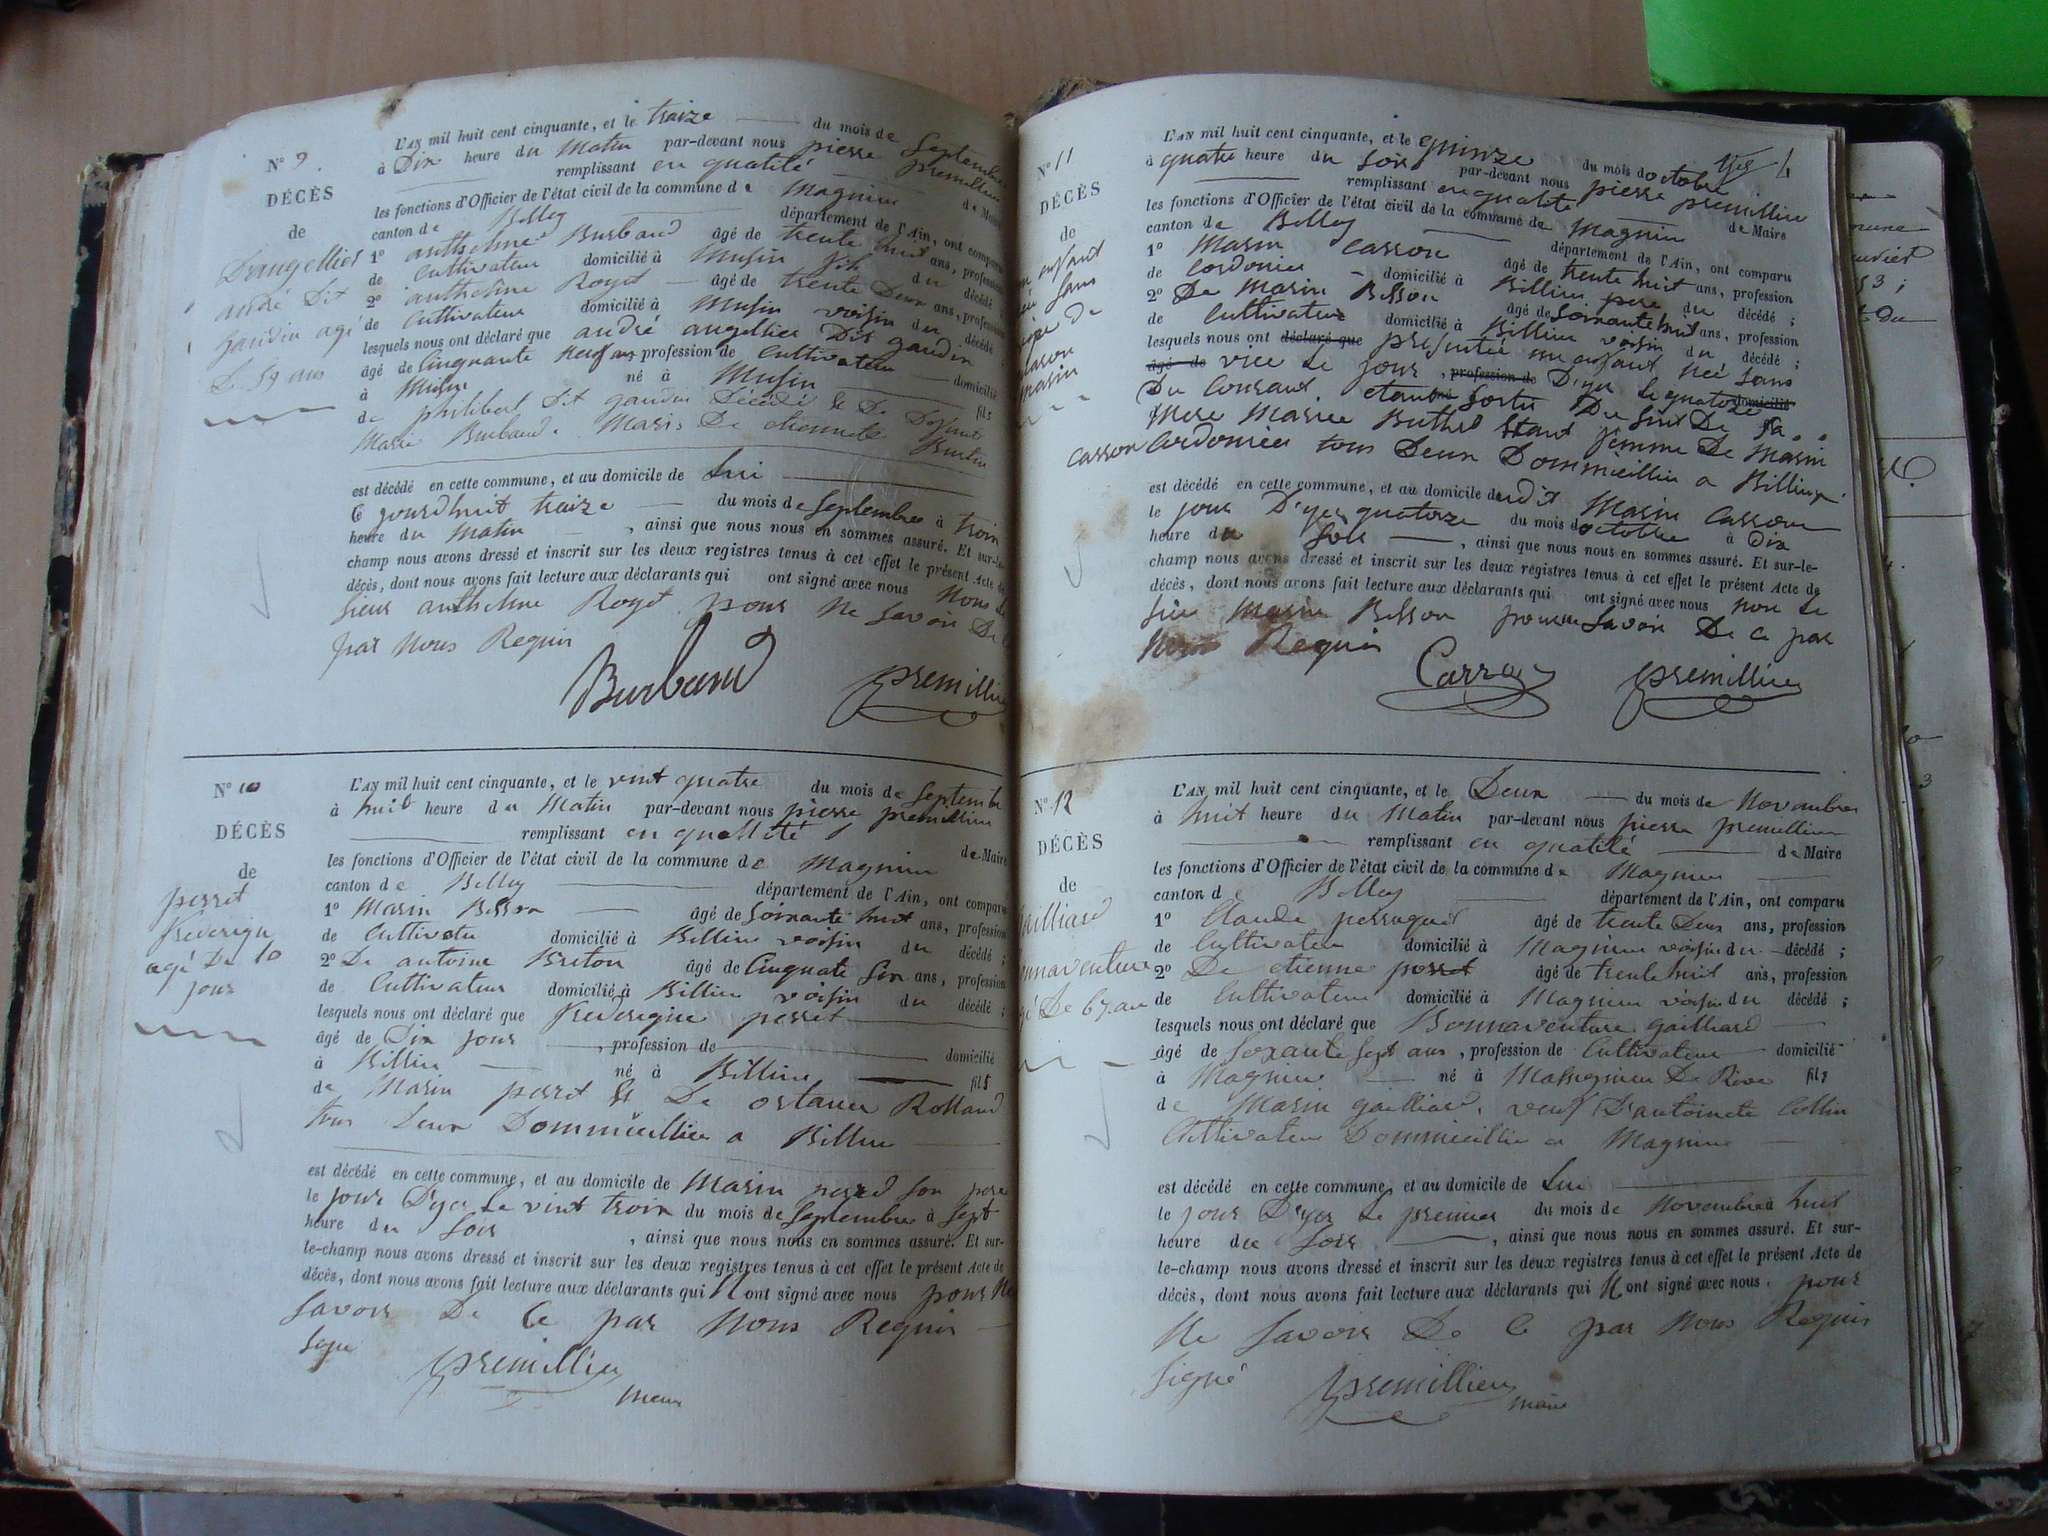 N° 9.
DÉCÈS
de
Dangellier
andré Dit
gaudin agé
De 59 ans
L'AN mil huit cent cinquante, et le traize du mois de Septembre
à Dix heure du Matin par-devant nous pierre premillieu
remplissant en qualité de Maire
les fonctions d'Officier de l'état civil de la commune de Magnieu
canton de Belley département de l'Ain, ont comparu
1° anthelme Burbaud âgé de trente huit ans, profession
de Cultivateur domicilié à Musin fils du décédé
2° anthelme Royet âgé de trente Deux ans, profession
de Cultivateur domicilié à Musin voisin du décédé
lesquels nous ont déclaré que andré angellier Dit gaudin
âgé de Cinquante neuf ans profession de Cultivateur domicilié
à Musin né à Musin fils
de philibert Dit gaudin Décédé & De Defunt
Marie Burbaud. Maris De etiennete Burtin
est décédé en cette commune, et au domicile de Lui
le jourdhuit traize du mois de Septembre à trois
heure du Matin, ainsi que nous nous en sommes assuré. Et sur-le-
champ nous avons dressé et inscrit sur les deux registres tenus à cet effet le présent Acte de
décès, dont nous avons fait lecture aux déclarants qui ont signé avec nous Non Le
sieur anthelme Royet pour ne savoir De
par nous Requis
Burbaud premillieu
N° 10
DÉCÈS
de
perret
frederiqu
agé De 10
jour
L'AN mil huit cent cinquante, et le vint quatre du mois de Septembr
à huit heure du Matin par-devant nous pierre premillieu
remplissant en quallité de Maire
les fonctions d'Officier de l'état civil de la commune de Magnieu
canton de Belley département de l'Ain, ont comparu
1° Marin Bisson âgé de Soixante huit ans, profession
de Cultivateu domicilié à Billieu voisin du décédé ;
2° De antoine Breton âgé de Cinquate Six ans, profession
de Cultivateur domicilié à Billieu voisin du décédé ;
lesquels nous ont déclaré que frederique perret
âgé de Dix jours, profession de domicilié
à Billieu né à Billieu fils
de Marin perret & De ostance Rolland
tous Deux Dommicillier a Billieu
est décédé en cette commune, et au domicile de Marin perred son pere
le jour D'yer Le vint trois du mois de Septembre à Sept
heure du Soir, ainsi que nous nous en sommes assuré. Et sur-
le-champ nous avons dressé et inscrit sur les deux registres tenus à cet effet le présent Acte de
décès, dont nous avons fait lecture aux déclarants qui N ont signé avec nous pour Ne
savoir De Ce par Nous Requis
signé
premillieu
maire
N° 11
DÉCÈS
de
enfant
sans
de
Casson
marin
L'AN mil huit cent cinquante, et le quinze du mois d'octobre
à quatre heure du Soir par-devant nous pierre premillieu
remplissant en qualité de Maire
les fonctions d'Officier de l'état civil de la commune de Magnieu
canton de Belley département de l'Ain, ont comparu
1° Marin Casson âgé de trente huit ans, profession
de Cordonier domicilié à Billieu pere du décédé ;
2° De Marin Bisson âgé de Soixante huit ans, profession
de Cultivateur domicilié à Billieu voisin du décédé ;
lesquels nous ont déclaré que presentée un enfant née sans
âgé de vice Le jour, profession de D'yer Le quatorze domicilié
Du Courant etant né Sortie Du Sint De Sa
Mere Mariee Buthod etant femme De Marin
Casson Cordonier tous Deux Dommicillier a Billieu
est décédé en cette commune, et au domicile dudit Marin Casson
le jour D'yer quatorze du mois d'octobre à Dix
heure du Soir, ainsi que nous nous en sommes assuré. Et sur-le-
champ nous avons dressé et inscrit sur les deux registres tenus à cet effet le présent Acte de
décès, dont nous avons fait lecture aux déclarants qui ont signé avec nous non Le
sieu Marin Bisson pour ne Savoir De Ce par
Nous Requis
Casson premillieu
N° 12
DÉCÈS
de
gailliard
Bonnaventure
agé De 67 an
L'AN mil huit cent cinquante, et le Deux du mois de Novembre
à huit heure du Matin par-devant nous pierre premillieu
remplissant en qualité de Maire
les fonctions d'Officier de l'état civil de la commune de Magnieu
canton de Belley département de l'Ain, ont comparu
1° Claude perruquet âgé de trente Deux ans, profession
de Cultivateur domicilié à Magnieu voisin du décédé ;
2° De etienne perret âgé de trente huit ans, profession
de Cultivateur domicilié à Magnieu voisin du décédé ;
lesquels nous ont déclaré que Bonnaventure gailliard
âgé de Soxante Sept ans, profession de Cultivateur domicilié
à Magnieu né à Massignieu De Rive fils
de Marin gailliard, veuf D'antoinete Collin
Cultivateur Dommicillier a Magnieu
est décédé en cette commune, et au domicile de Lui
le jour D'yer Le premier du mois de Novembre à huit
heure du Soir, ainsi que nous nous en sommes assuré. Et sur-
le-champ nous avons dressé et inscrit sur les deux registres tenus à cet effet le présent Acte de
décès, dont nous avons fait lecture aux déclarants qui N ont signé avec nous. pour
Ne Savoir De Ce par Nous Requis
Signé
premillieu
maire